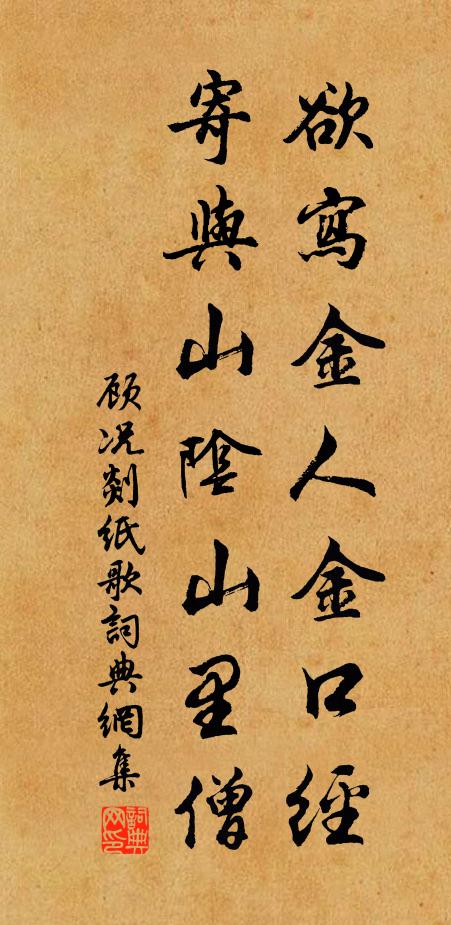 欲寫金人金口經
寄與山陰山里僧
顾况剡纸歌詞典網集
詞典网印